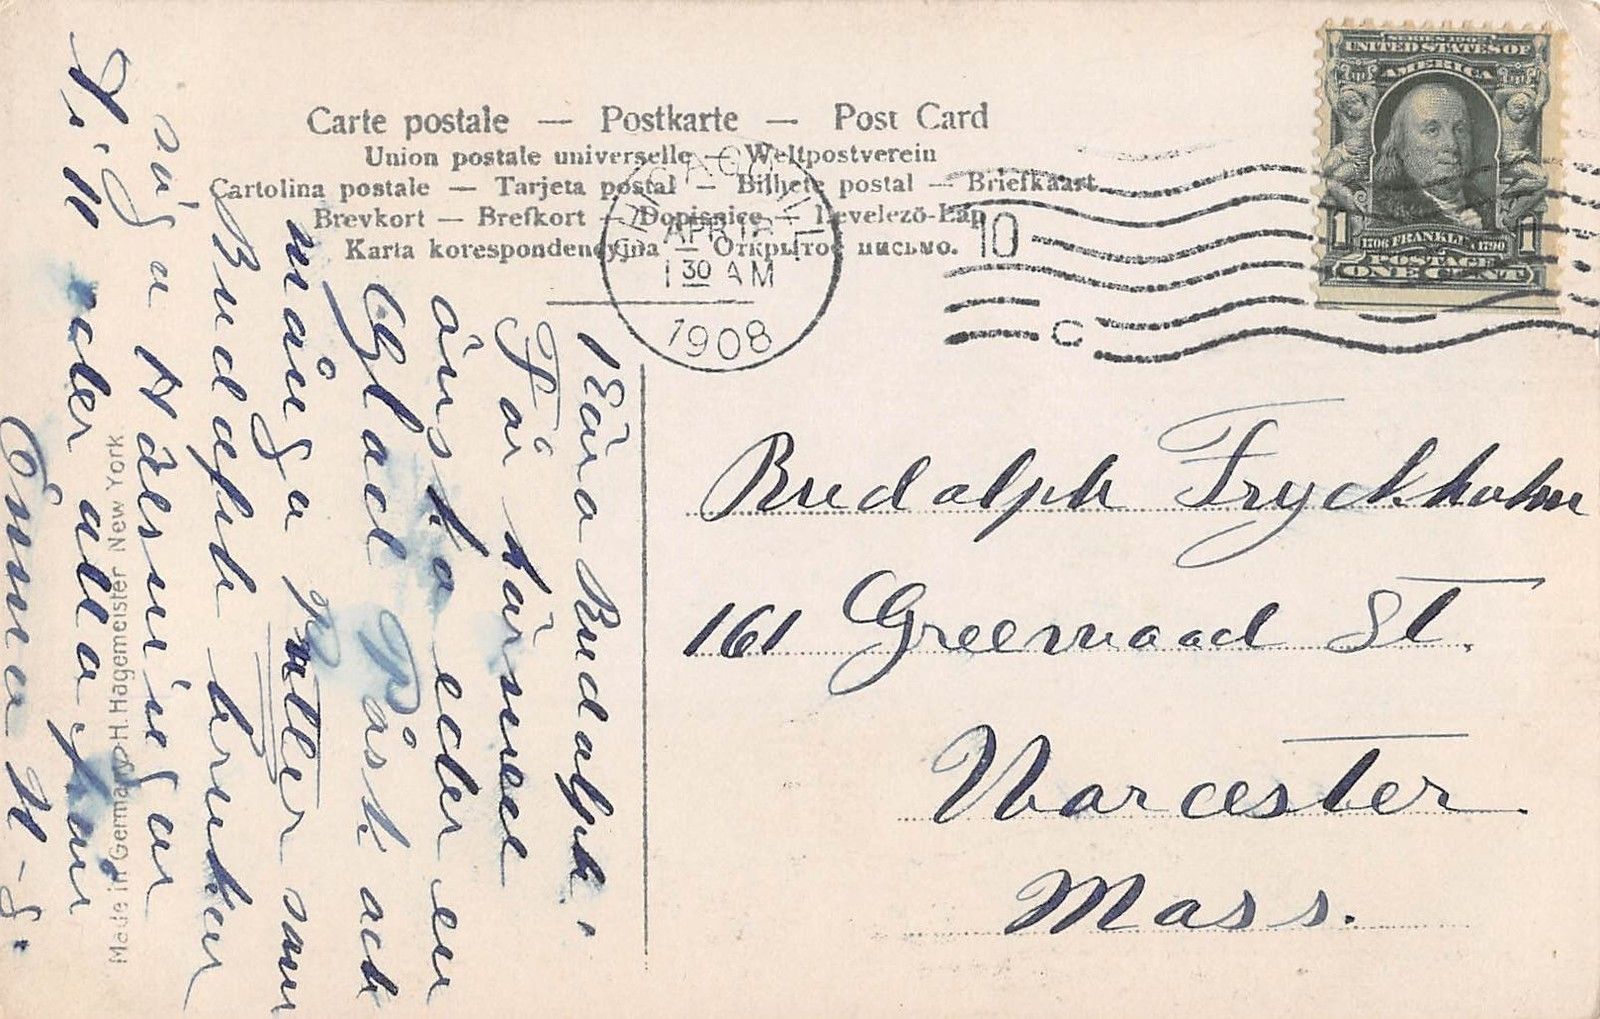 Carte postale — Postkarte — Post Card
Union postale universelle — Weltpostverein
Cartolina postale — Tarjeta postal — Bilhete postal — Briefkaart
Brevkort — Brefkort — Dopisnice — Levelező-Lap
Karta korespondencyjna — Открытое письмо.
CHICAGO, ILL.
APR 18
1 30 AM
1908
10
C
SERIES 1902
UNITED STATES OF
AMERICA
1 1
1706 FRANKLIN 1790
POSTAGE
ONE CENT
Rudolph Fryckholm
161 Greenwood St.
Worcester
Mass.
Kära Rudolph.
Får härmed
önska eder en
Glad Påsk och
många som
Rudolph bruker
säga Hälsningar
Till eder alla från
H-g.
Made in Germany H. Hagemeister New York